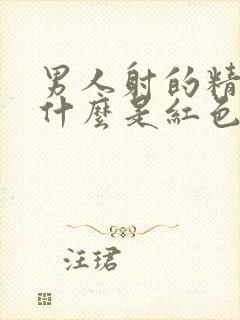 男人射的精
什麼是紅色
汪珺